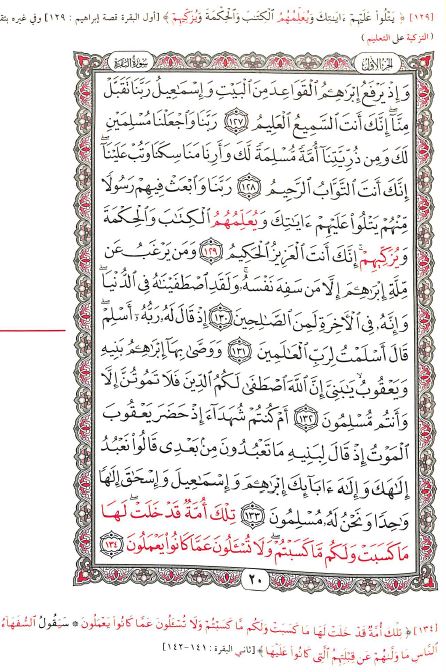 [١٢٩] ﴿ يَتْلُوا۟ عَلَيْهِمْ ءَايَٰتِكَ وَيُعَلِّمُهُمُ ٱلْكِتَٰبَ وَٱلْحِكْمَةَ وَيُزَكِّيهِمْ ﴾ [أول البقرة قصة إبراهيم : ١٢٩] وفي غيره بتقد
( التزكية على التعليم )
الجزء الأول سورة البقرة
وَإِذْ يَرْفَعُ إِبْرَٰهِۦمُ ٱلْقَوَاعِدَ مِنَ ٱلْبَيْتِ وَإِسْمَٰعِيلُ رَبَّنَا تَقَبَّلْ
مِنَّآ إِنَّكَ أَنتَ ٱلسَّمِيعُ ٱلْعَلِيمُ ١٢٧ رَبَّنَا وَٱجْعَلْنَا مُسْلِمَيْنِ
لَكَ وَمِن ذُرِّيَّتِنَآ أُمَّةً مُّسْلِمَةً لَّكَ وَأَرِنَا مَنَاسِكَنَا وَتُبْ عَلَيْنَآ
إِنَّكَ أَنتَ ٱلتَّوَّابُ ٱلرَّحِيمُ ١٢٨ رَبَّنَا وَٱبْعَثْ فِيهِمْ رَسُولًا
مِّنْهُمْ يَتْلُوا۟ عَلَيْهِمْ ءَايَٰتِكَ وَيُعَلِّمُهُمُ ٱلْكِتَٰبَ وَٱلْحِكْمَةَ
وَيُزَكِّيهِمْ إِنَّكَ أَنتَ ٱلْعَزِيزُ ٱلْحَكِيمُ ١٢٩ وَمَن يَرْغَبُ عَن
مِّلَّةِ إِبْرَٰهِۦمَ إِلَّا مَن سَفِهَ نَفْسَهُۥ وَلَقَدِ ٱصْطَفَيْنَٰهُ فِى ٱلدُّنْيَا
وَإِنَّهُۥ فِى ٱلْءَاخِرَةِ لَمِنَ ٱلصَّٰلِحِينَ ١٣٠ إِذْ قَالَ لَهُۥ رَبُّهُۥٓ أَسْلِمْ
قَالَ أَسْلَمْتُ لِرَبِّ ٱلْعَٰلَمِينَ ١٣١ وَوَصَّىٰ بِهَآ إِبْرَٰهِۦمُ بَنِيهِ
وَيَعْقُوبُ يَٰبَنِىَّ إِنَّ ٱللَّهَ ٱصْطَفَىٰ لَكُمُ ٱلدِّينَ فَلَا تَمُوتُنَّ إِلَّا
وَأَنتُم مُّسْلِمُونَ ١٣٢ أَمْ كُنتُمْ شُهَدَآءَ إِذْ حَضَرَ يَعْقُوبَ
ٱلْمَوْتُ إِذْ قَالَ لِبَنِيهِ مَا تَعْبُدُونَ مِنۢ بَعْدِى قَالُوا۟ نَعْبُدُ
إِلَٰهَكَ وَإِلَٰهَ ءَابَآئِكَ إِبْرَٰهِۦمَ وَإِسْمَٰعِيلَ وَإِسْحَٰقَ إِلَٰهًا
وَٰحِدًا وَنَحْنُ لَهُۥ مُسْلِمُونَ ١٣٣ تِلْكَ أُمَّةٌ قَدْ خَلَتْ لَهَا
مَا كَسَبَتْ وَلَكُم مَّا كَسَبْتُمْ وَلَا تُسْـَٔلُونَ عَمَّا كَانُوا۟ يَعْمَلُونَ ١٣٤
٢٠
[١٣٤] ﴿ تِلْكَ أُمَّةٌ قَدْ خَلَتْ لَهَا مَا كَسَبَتْ وَلَكُم مَّا كَسَبْتُمْ وَلَا تُسْـَٔلُونَ عَمَّا كَانُوا۟ يَعْمَلُونَ * سَيَقُولُ ٱلسُّفَهَآءُ
ٱلنَّاسِ مَا وَلَّىٰهُمْ عَن قِبْلَتِهِمُ ٱلَّتِى كَانُوا۟ عَلَيْهَا ﴾ [ثاني البقرة : ١٤١-١٤٢]